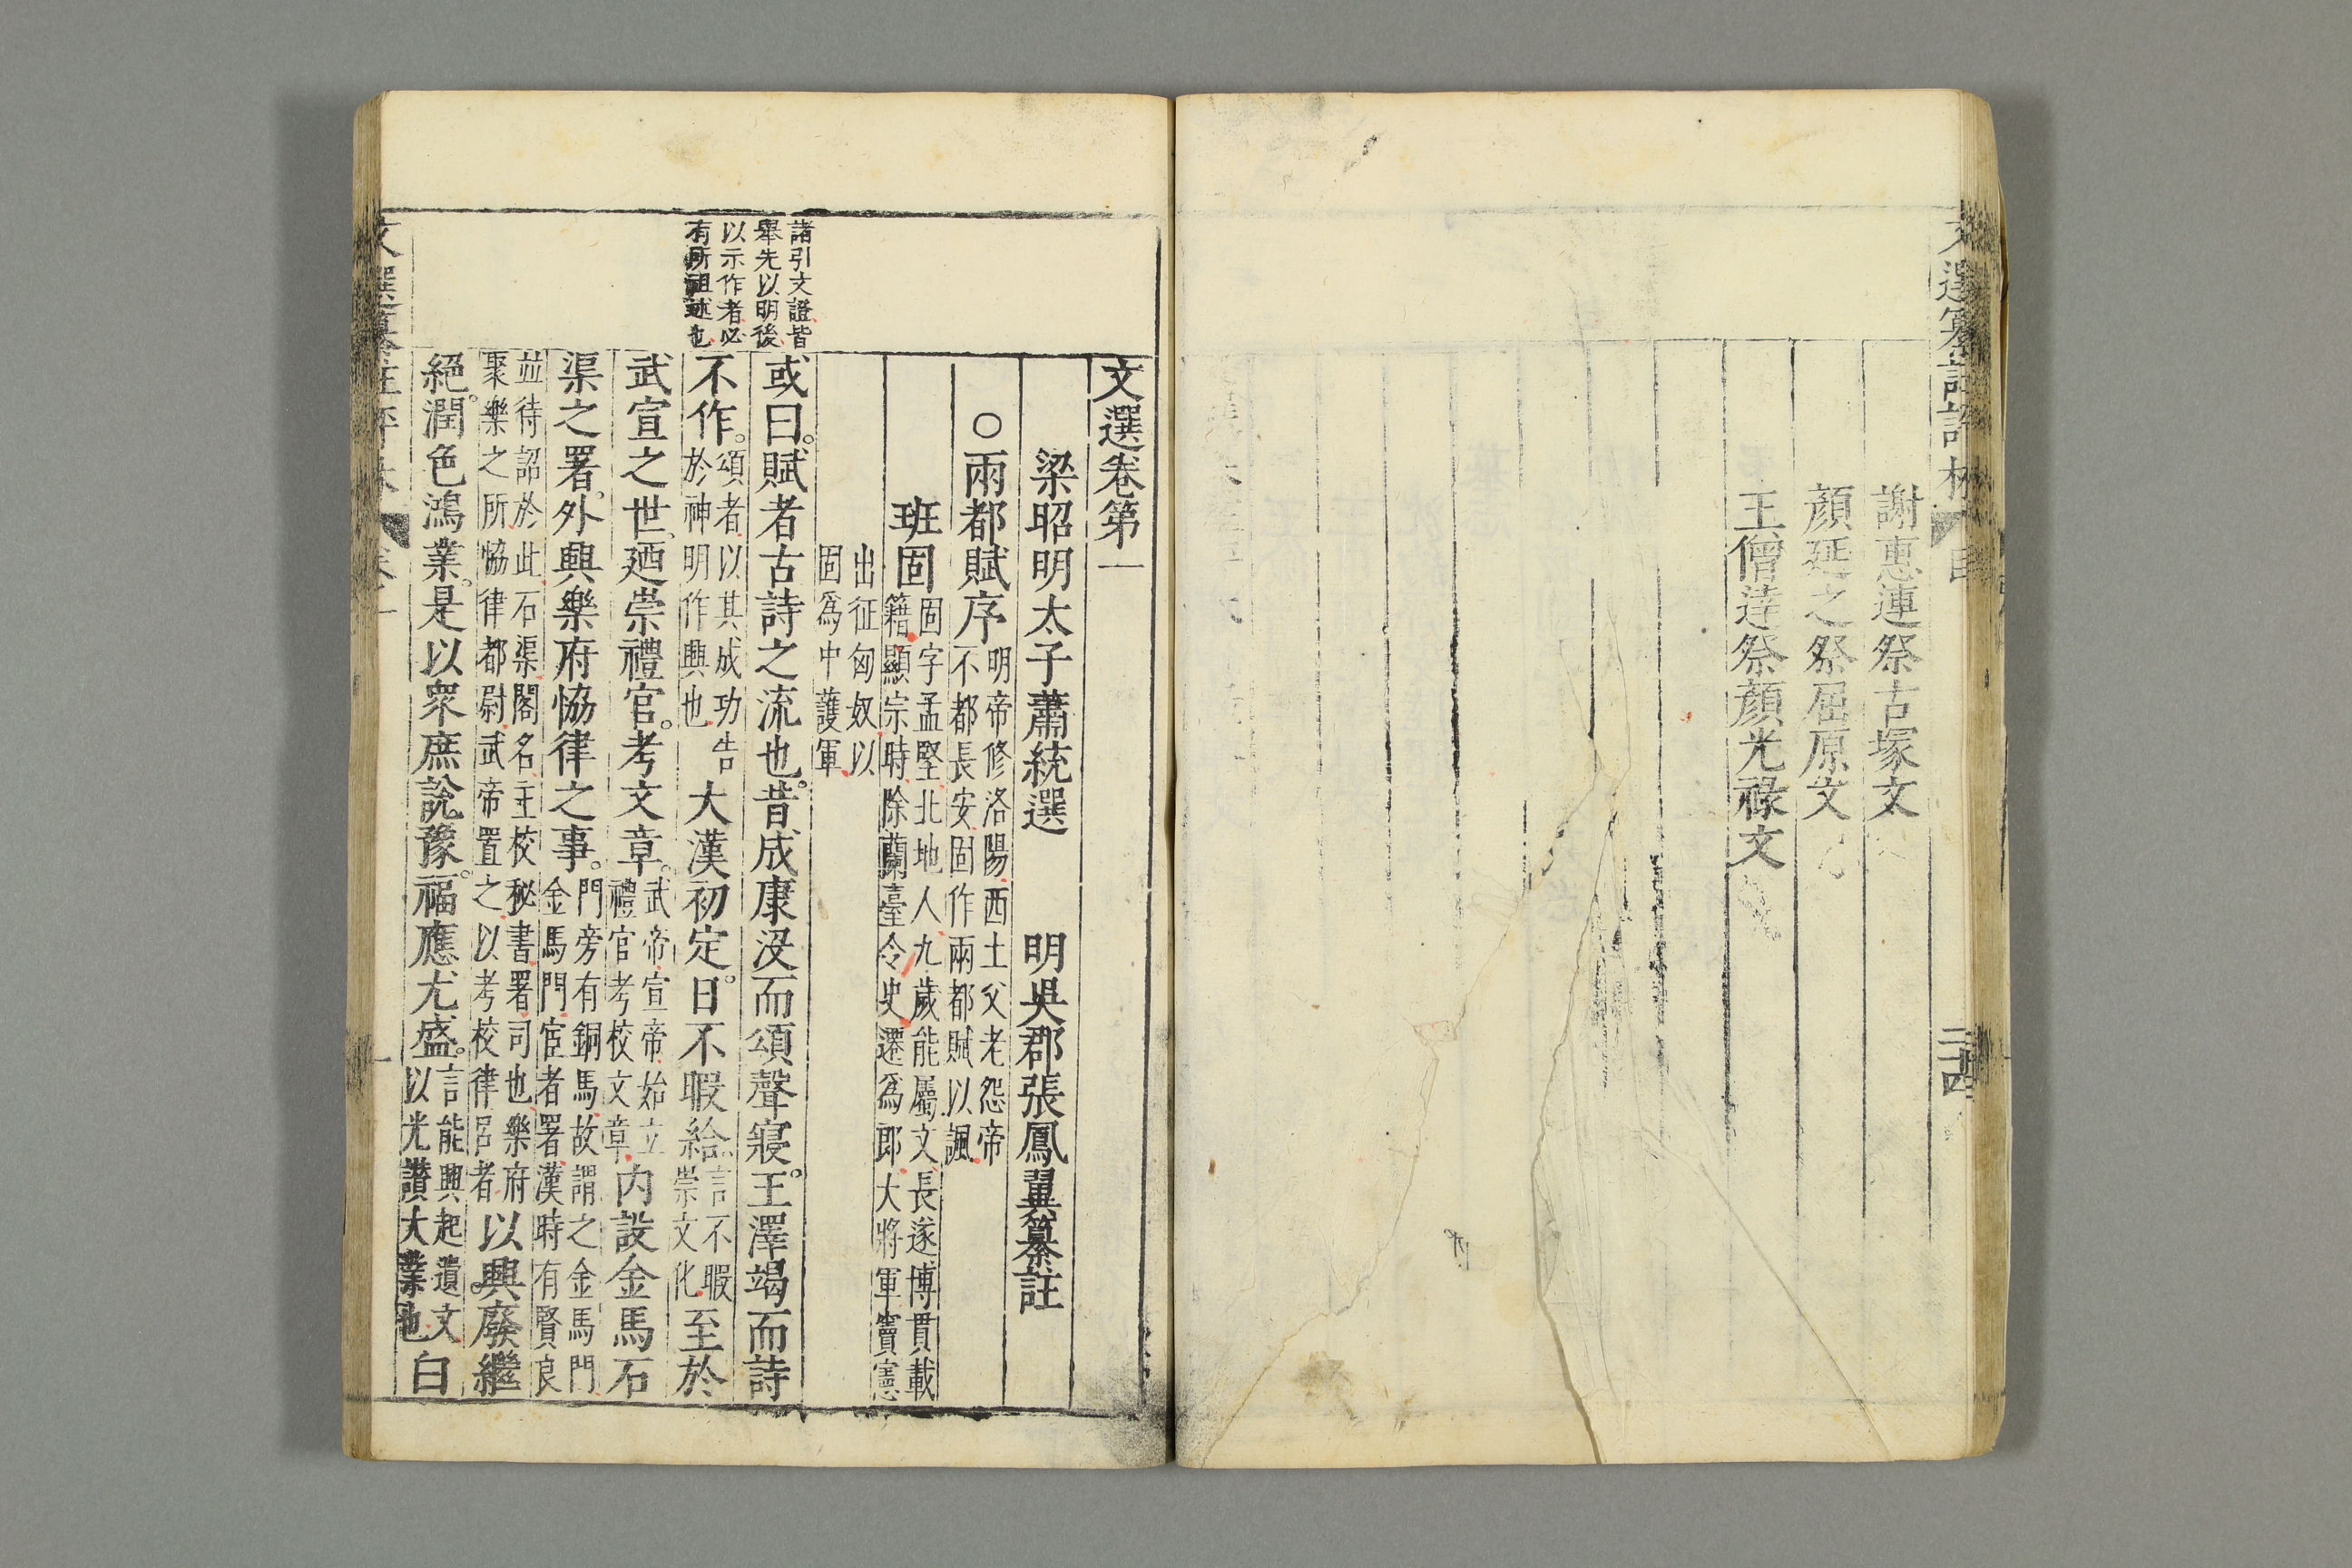 謝惠連祭古塚文
顏延之祭屈原文
王僧達祭顏光祿文
二十四
文選卷第一
梁昭明太子蕭統選 明吳郡張鳳翼纂註
○兩都賦序 明帝修洛陽西土父老怨帝
不都長安固作兩都賦以諷
班固 固字孟堅北地人九歲能屬文長遂博貫載
籍顯宗時除蘭臺令史遷爲郎大將軍竇憲
出征匈奴以
固爲中護軍
諸引文證皆
舉先以明後
以示作者必
有所祖述也
或曰賦者古詩之流也昔成康沒而頌聲寢王澤竭而詩
不作 頌者以其成功告
於神明作興也
大漢初定日不暇給 言不暇
崇文化
至於
武宣之世廼崇禮官考文章 武帝宣帝始立
禮官考校文章
內設金馬石
渠之署外興樂府協律之事 門旁有銅馬故謂之金馬門
金馬門宦者署漢時有賢良
並待詔於此石渠閣名主校秘書署司也樂府
聚樂之所協律都尉武帝置之以考校律呂者
以興廢繼
絕潤色鴻業是以眾庶說豫福應尤盛 言能興起遺文
以光讚大業也
白
文選纂註評林 卷之一
一